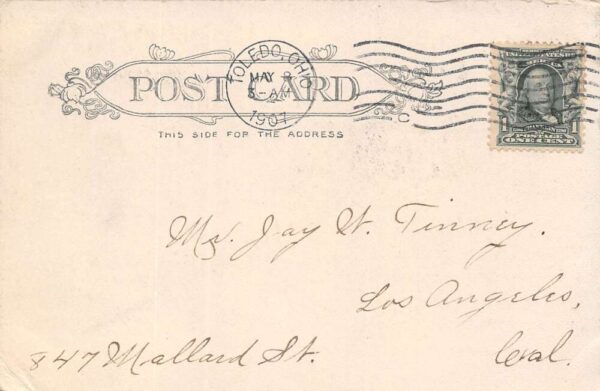 POST CARD
TOLEDO, OHIO
MAY 8
5-AM
1907
C
THIS SIDE FOR THE ADDRESS
1 1
ONE CENT
Mr. Jay W. Tinney.
Los Angeles,
847 Mallard St. Cal.